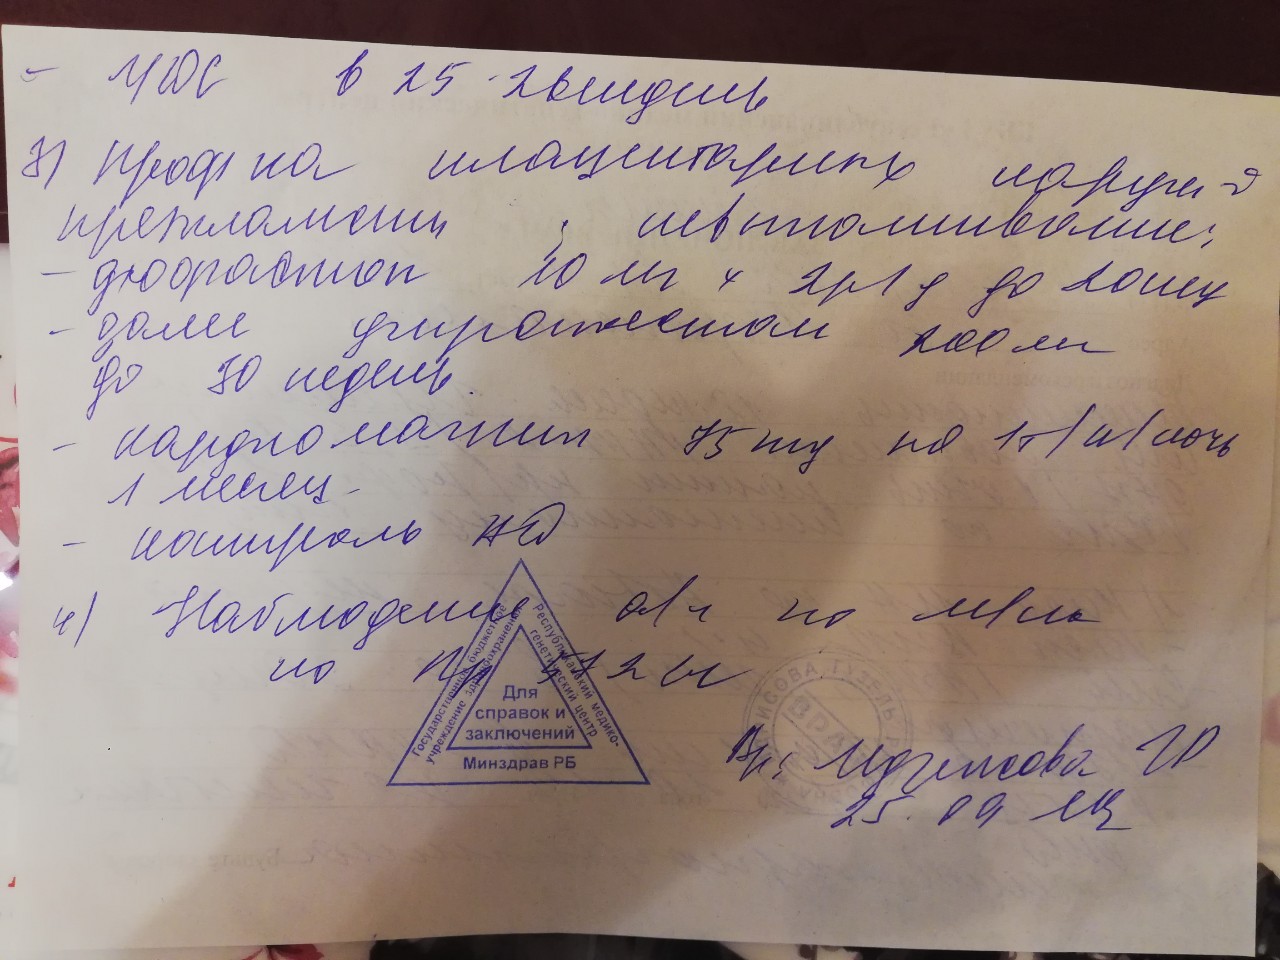 - УЗИ в 25-26 недель
3) Проф-ка плацентарных наруш-й
преэклампсии, невынашивание:
- дюфастон 10 мг х 2р/д до
- далее утрожестан 200 мг
до 30 недель
- кардиомагнил 75 mg по 1т/н/ночь
1 месяц
- контроль АД
4) Наблюдение а/г по м/ж
по
Государственное бюджетное
учреждение здравоохранения
Республиканский медико-
генетический центр
Для
справок и
заключений
Минздрав РБ
ГУЗЕЛЬ
ВРАЧ
Вр:
25.09